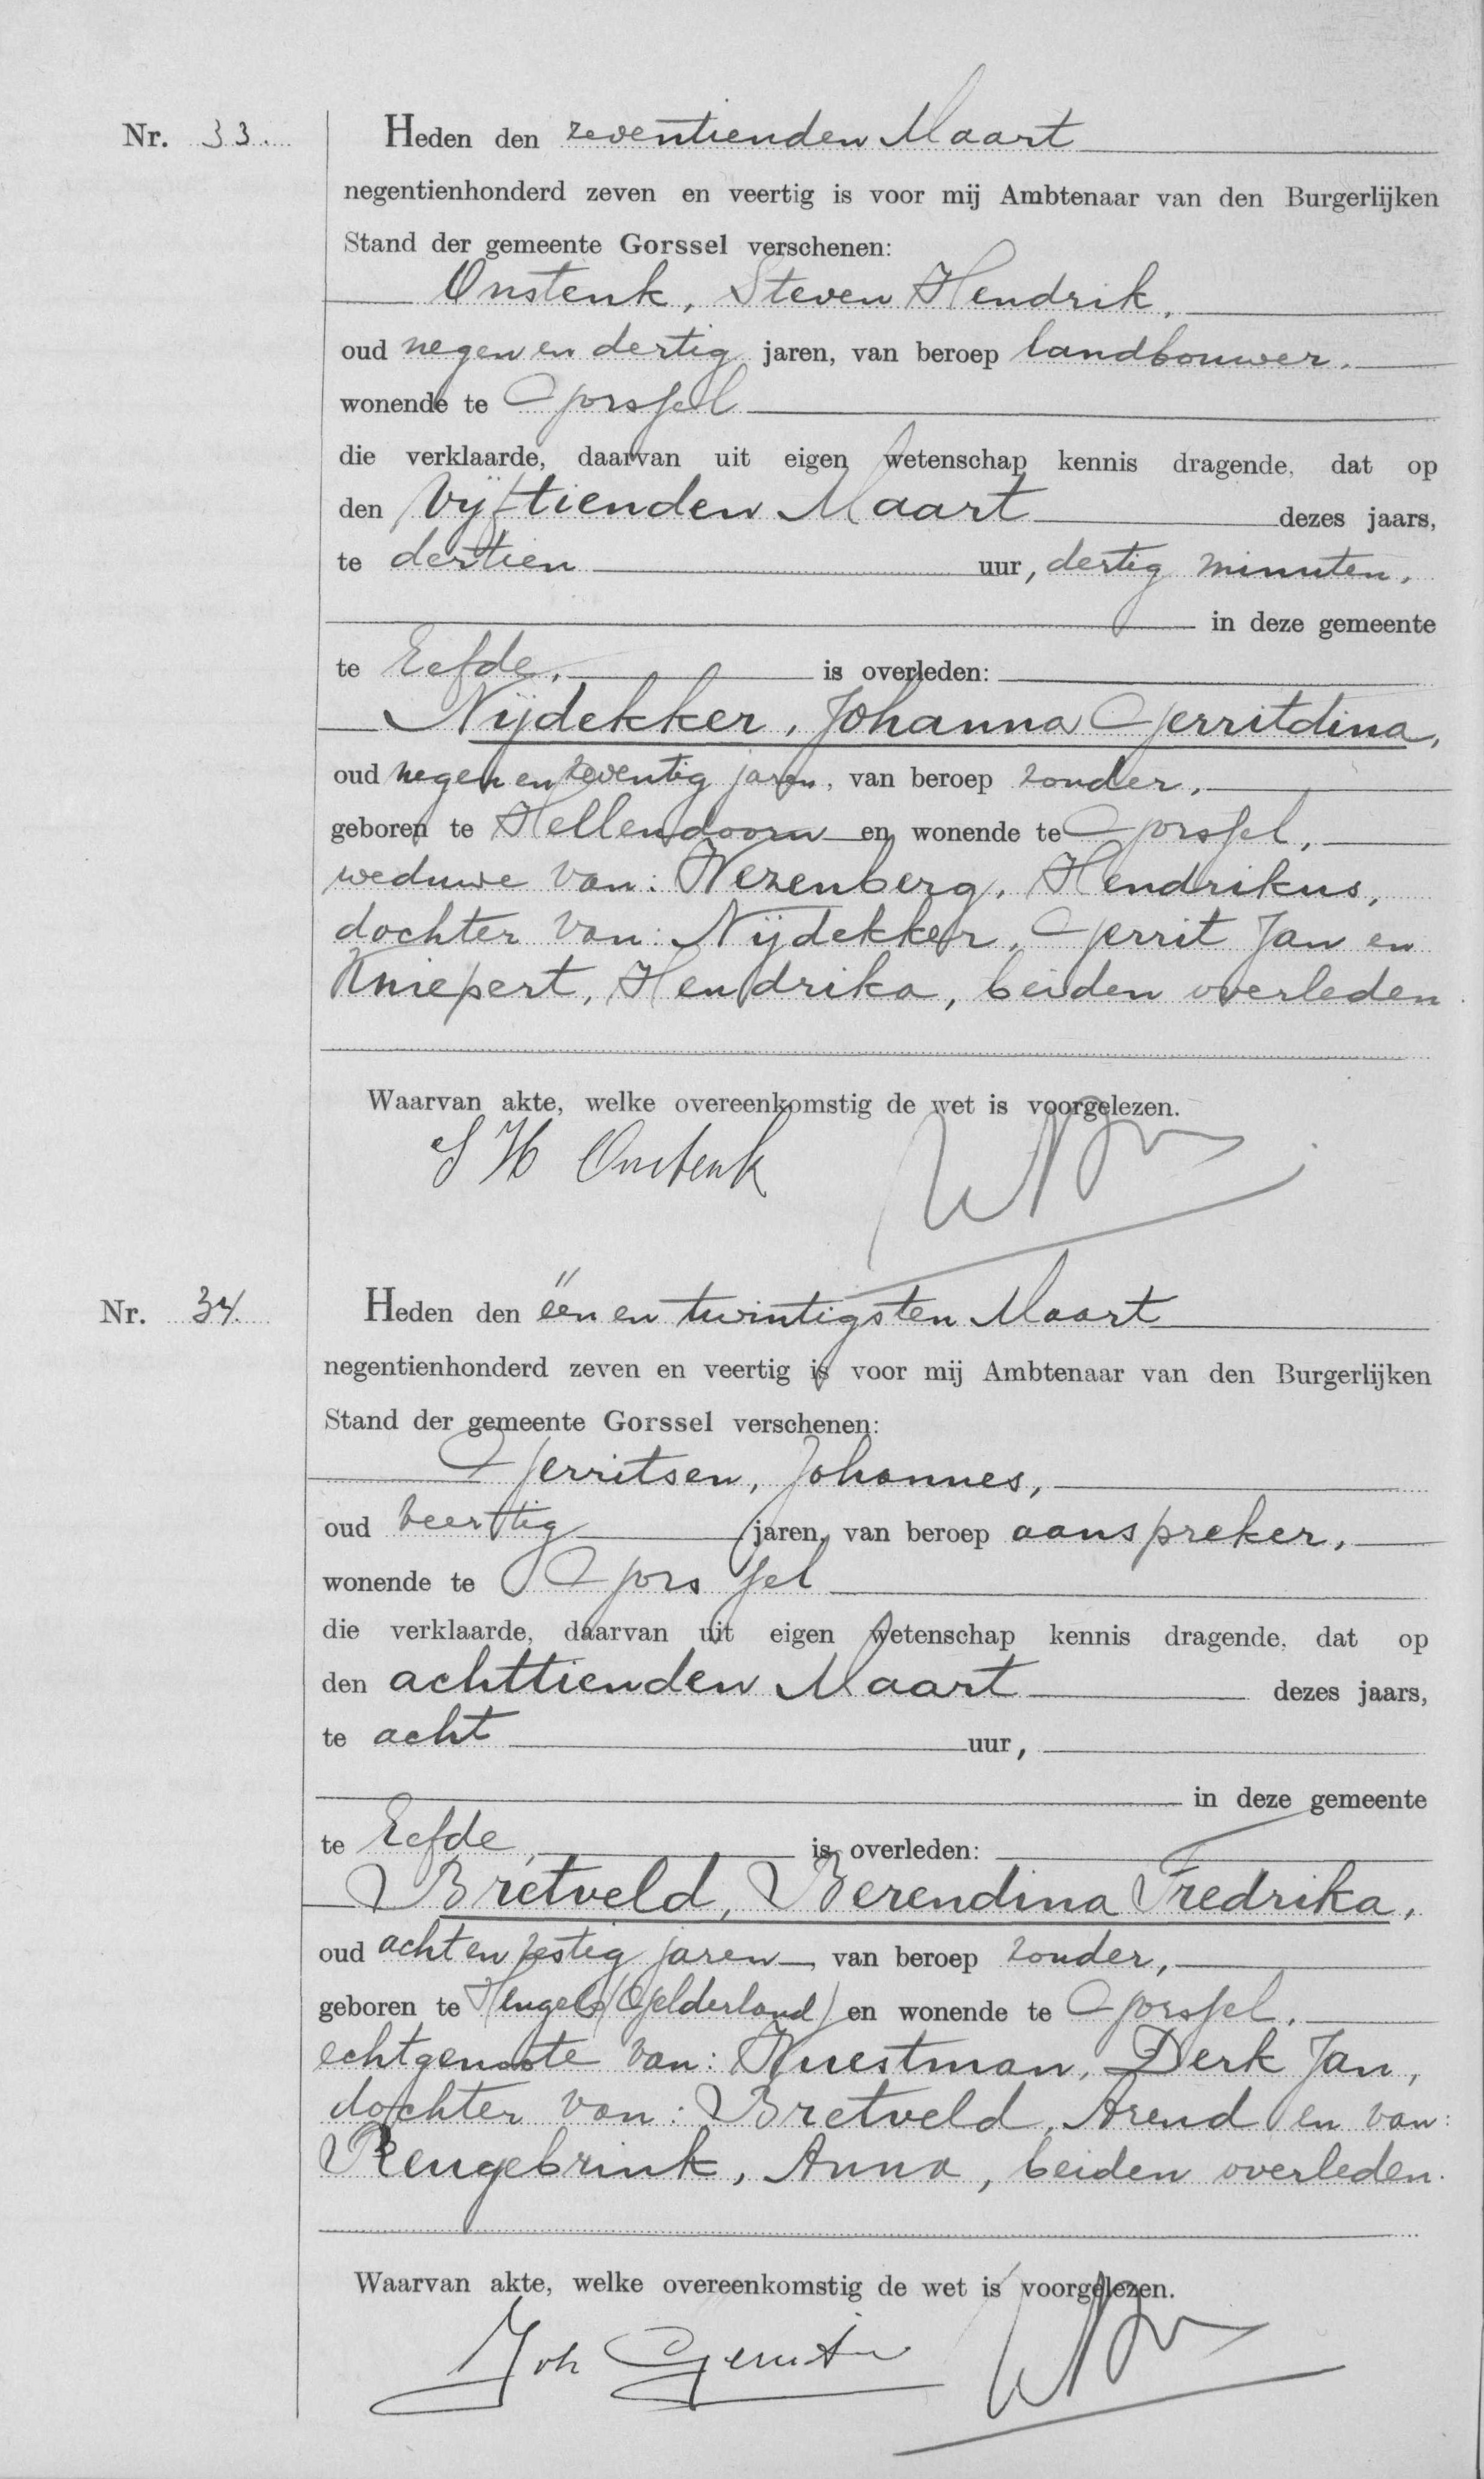 Nr. 33.
Heden den zeventienden Maart
negentienhonderd zeven en veertig is voor mij Ambtenaar van den Burgerlijken
Stand der gemeente Gorssel verschenen:
Onstenk, Steven Hendrik,
oud negen en dertig jaren, van beroep landbouwer,
wonende te Gorssel
die verklaarde, daarvan uit eigen wetenschap kennis dragende, dat op
den vijftienden Maart dezes jaars,
te dertien uur, dertig minuten,
in deze gemeente
te Eefde, is overleden:
Nijdekker, Johanna Gerritdina,
oud negen en zeventig jaren, van beroep zonder,
geboren te Hellendoorn en wonende te Gorssel,
weduwe van: Wezenberg, Hendrikus,
dochter van: Nijdekker, Gerrit Jan en
Kniepert, Hendrika, beiden overleden.
Waarvan akte, welke overeenkomstig de wet is voorgelezen.
S H Onstenk
Nr. 34.
Heden den één en twintigsten Maart
negentienhonderd zeven en veertig is voor mij Ambtenaar van den Burgerlijken
Stand der gemeente Gorssel verschenen:
Gerritsen, Johannes,
oud veertig jaren, van beroep aanspreker,
wonende te Gorssel
die verklaarde, daarvan uit eigen wetenschap kennis dragende, dat op
den achttienden Maart dezes jaars,
te acht uur,
in deze gemeente
te Eefde, is overleden:
Bretveld, Berendina Fredrika,
oud acht en zestig jaren, van beroep zonder,
geboren te Hengelo (Gelderland) en wonende te Gorssel,
echtgenoote van: Wuestman, Derk Jan,
dochter van: Bretveld, Arend en van:
Rengebrink, Anna, beiden overleden.
Waarvan akte, welke overeenkomstig de wet is voorgelezen.
Joh Gerritsen